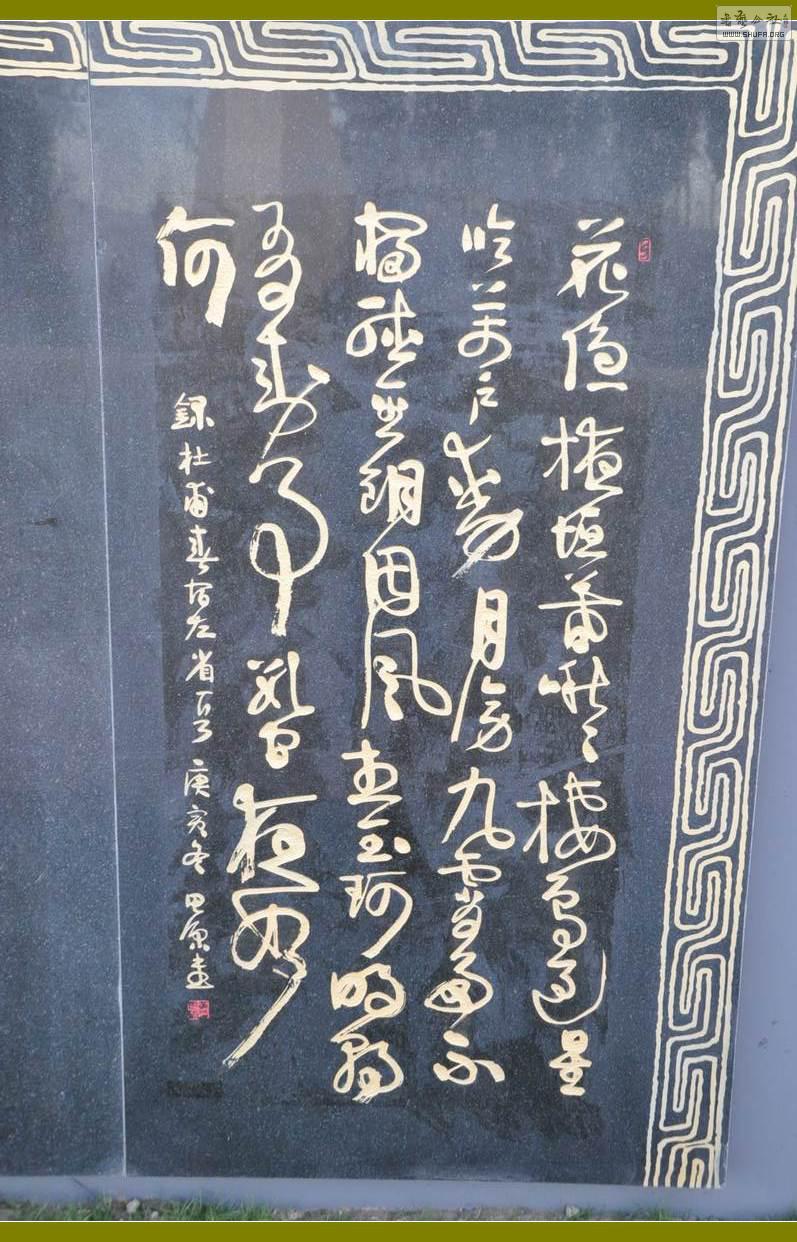 書藝公社
WWW.SHUFA.ORG
花隱掖垣暮啾〻棲鳥過星
臨萬户動月傍九霄多不
寢聽金鑰因風想玉珂明朝
有封事數問夜如
何
録杜甫春宿左省 庚寅冬 田原書